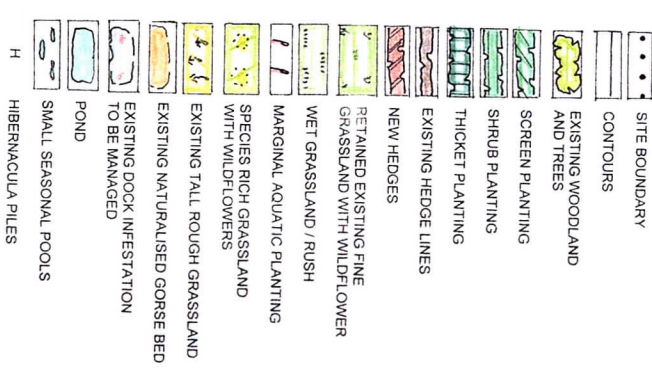 SITE BOUNDARY
CONTOURS
EXISTING WOODLAND
AND TREES
SCREEN PLANTING
SHRUB PLANTING
THICKET PLANTING
EXISTING HEDGE LINES
NEW HEDGES
RETAINED EXISTING FINE
GRASSLAND WITH WILDFLOWER
WET GRASSLAND / RUSH
MARGINAL AQUATIC PLANTING
SPECIES RICH GRASSLAND
WITH WILDFLOWERS
EXISTING TALL ROUGH GRASSLAND
EXISTING NATURALISED GORSE BED
EXISTING DOCK INFESTATION
TO BE MANAGED
POND
SMALL SEASONAL POOLS
H HIBERNACULA PILES